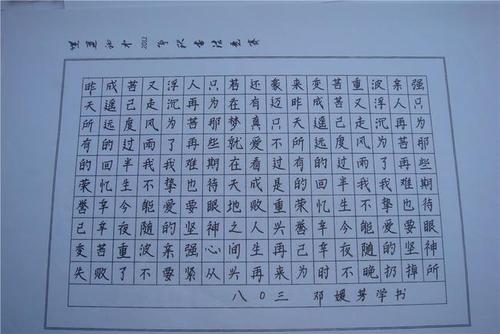 昨天所有的荣誉已变
成遥远的回忆辛辛苦
苦已度过半生今夜重
又走风雨我不能随波
浮沉为了我挚爱的亲
人再苦再难也要坚强
只为那些期待眼神心
若在梦就在天地之间
还有真爱看成败人生
豪迈只不过是重头再
来昨天所有的荣誉已
变成遥远的回忆辛辛
苦苦已度过半生今夜
重又走风雨我不能随
波浮沉为了我挚爱的
亲人再苦再难也要坚
强只为那些期待眼神
失败了不要紧从头再来为时不晚扔掉所
八〇三 邓媛芳学书